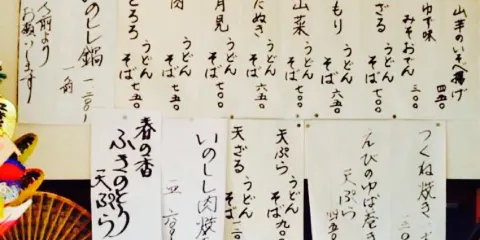 山芋のいそべ揚げ
四五〇
ゆず味
みそおでん
三〇〇
ざる
うどん
そば
六五〇
もり
うどん
そば
六五〇
山菜
うどん
そば
七〇〇
たぬき
うどん
そば
六五〇
月見
うどん
そば
七〇〇
肉
うどん
そば
七五〇
とろろ
うどん
そば
七五〇
いのしし鍋
一人前
一二〇〇
人前より
お願いします
つくね焼き
えびのゆば巻き
天ぷら
四五〇
天ぷら
うどん
そば
九〇〇
天ざる
うどん
そば
いのしし肉焼
春の香
ふきのとう
天ぷら